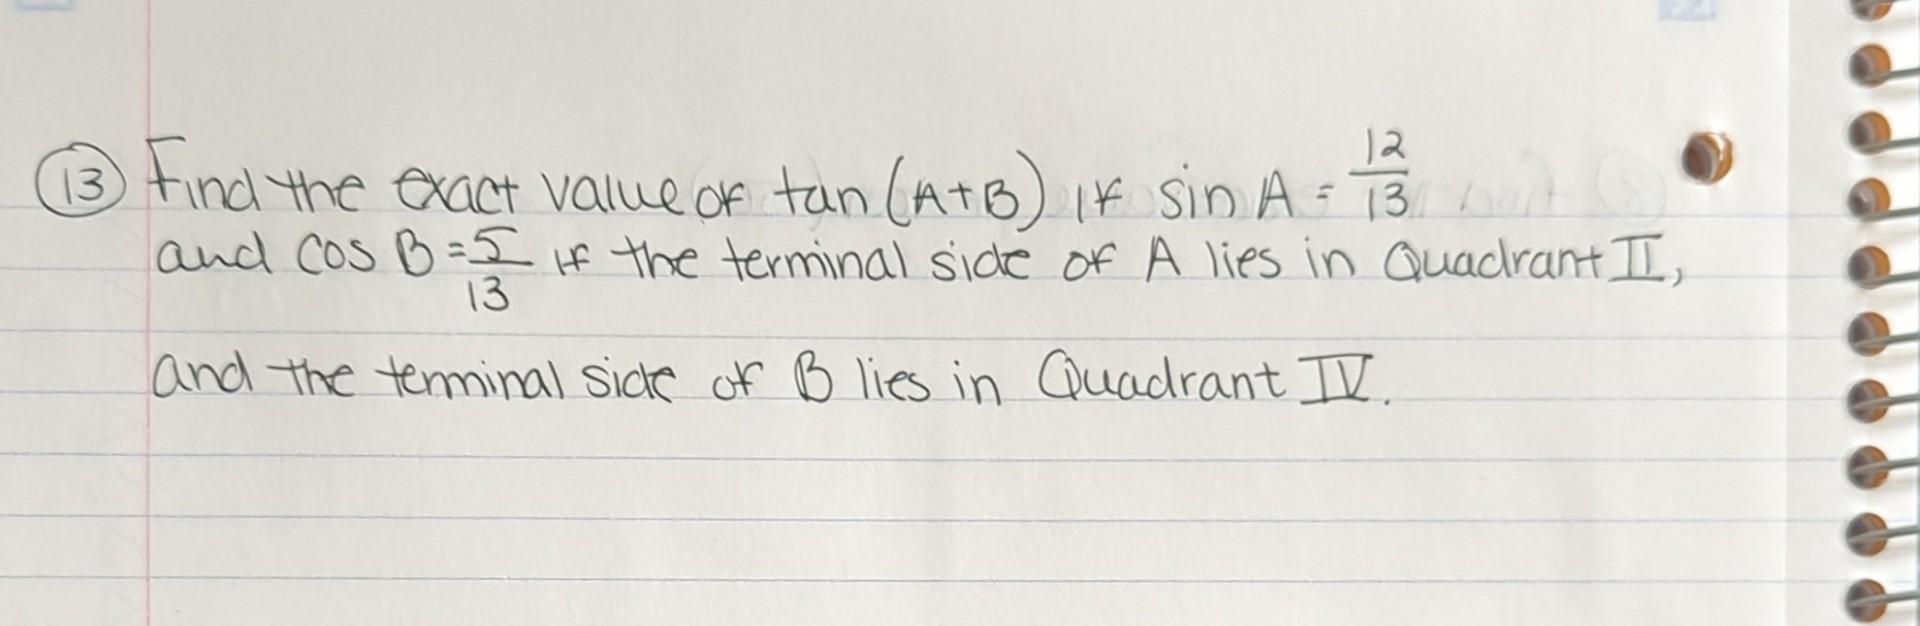 13 Find the exact value of tan (A+B) if sin A = 12/13
and cos B = 5/13 if the terminal side of A lies in Quadrant II,
and the terminal side of B lies in Quadrant IV.